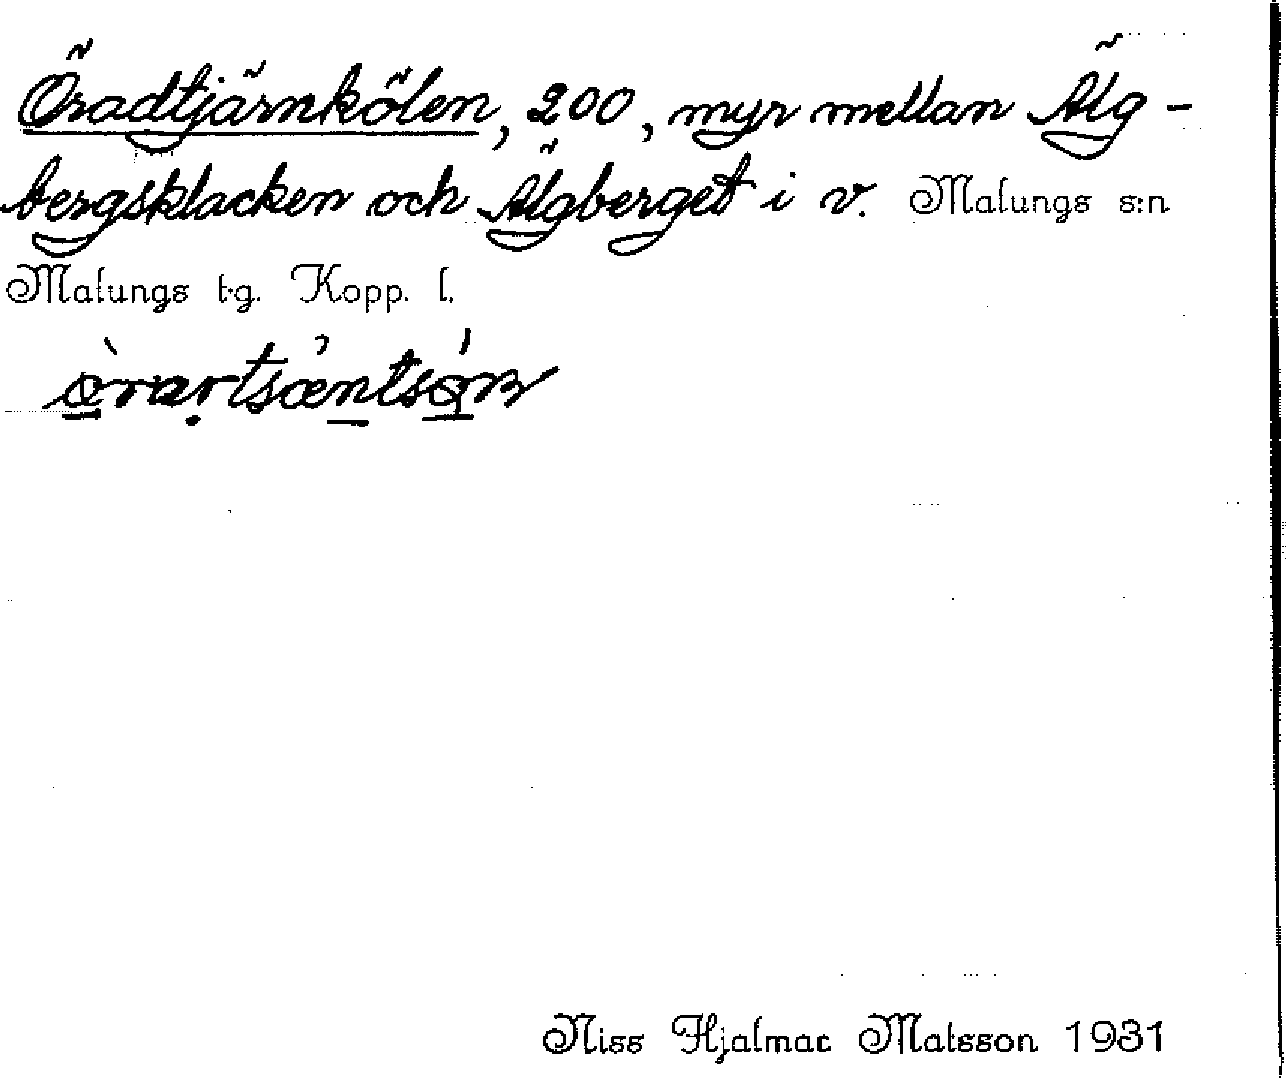 Öradtjärnkölen, 200, myr mellan Älg-
bergsklacken och Älgberget i v. Malungs s:n
Malungs tg. Kopp. l.
Niss Hjalmar Matsson 1931